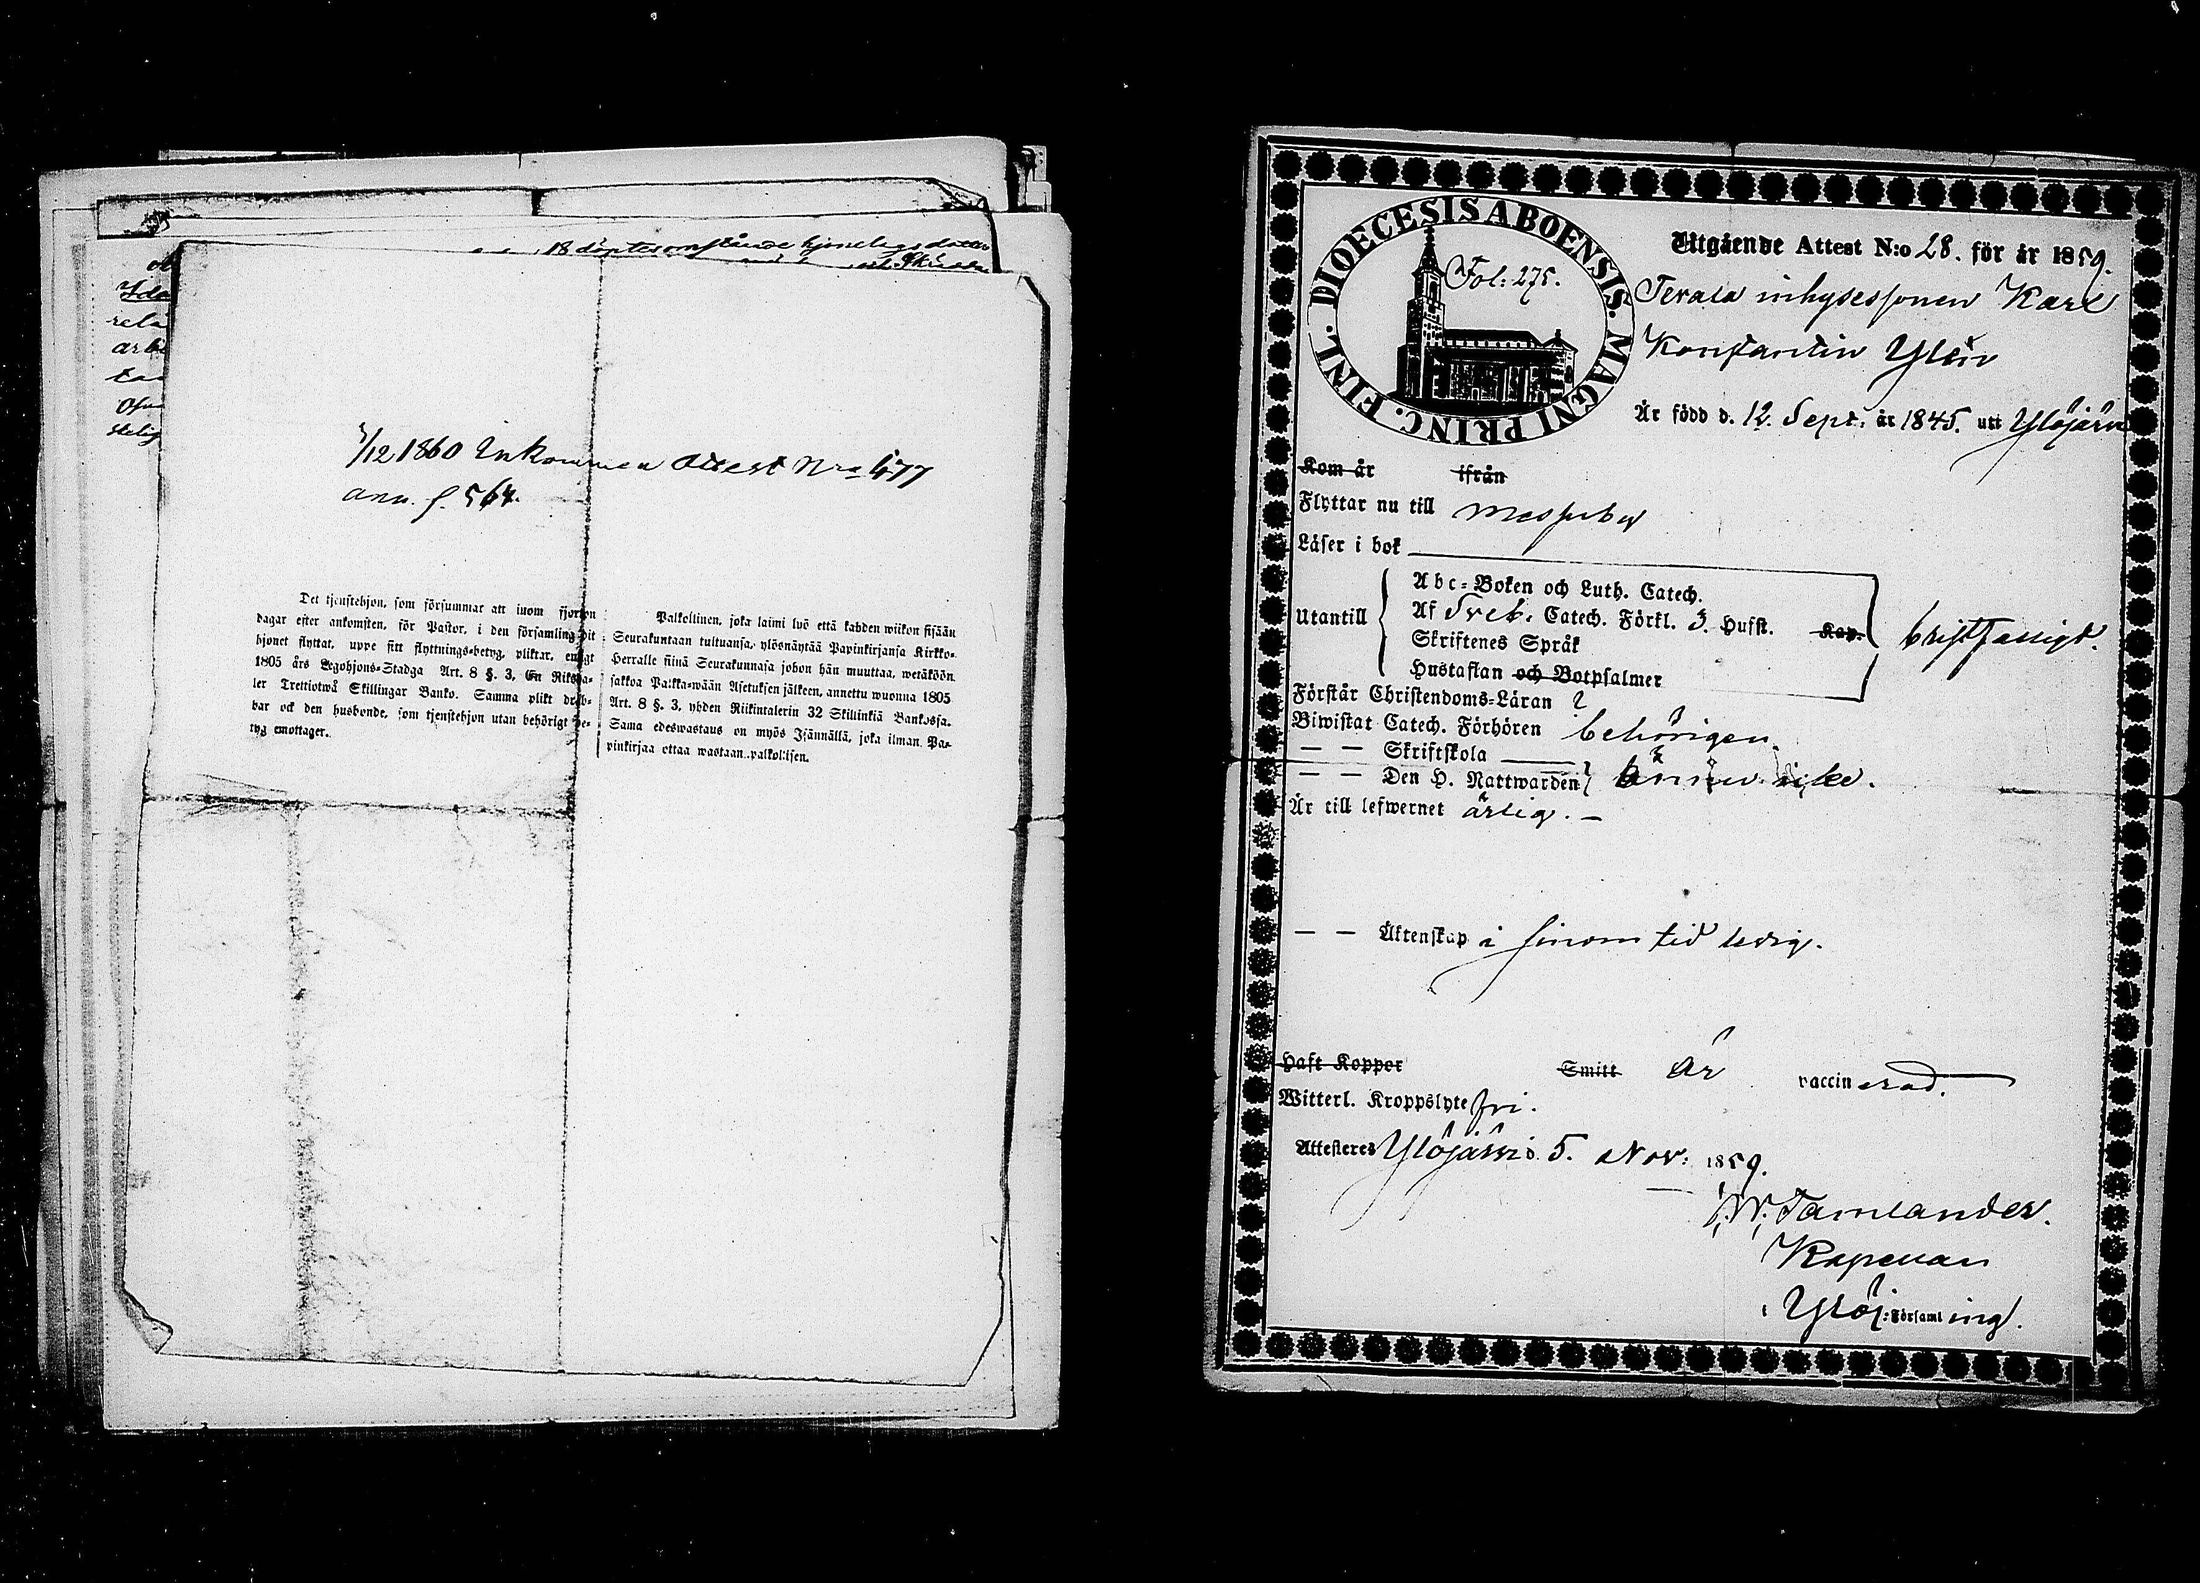 18 döptes omstående hjonelags dotter
Ida
rela
arbe
5/12 1860 Inkommen Attest Nro 477
ann. f. 564.
Det tjenstehjon, som försummar att inom fjorton
dagar efter ankomsten, för Pastor, i den församling dit
hjonet flyttat, uppe sitt flyttnings-betyg, pliktar, enligt
1805 års Legohjons-Stadga Art. 8 §. 3, En Riksda-
ler Trettiotwå Skillingar Banko. Samma plikt dräb-
bar ock den husbonde, som tjenstehjon utan behörigt be-
tyg emottager.
Palkollinen, joka laimi lyö että kahden wiikon sisään
Seurakuntaan tultuansa, ylösnäytää Papinkirjansa Kirkko-
Herralle siinä Seurakunnasa johon hän muuttaa, wetäköön
sakkoa Palkka-wään Asetuksen jälkeen, annettu wuonna 1805
Art. 8 §. 3, yhden Riikintalerin 32 Skillinkiä Bankosja.
Sama edeswastaus on myös Isännällä, joka ilman Pa-
pinkirjaa ottaa wastaan palkollisen.
DIOECESIS ABOENSIS. MAGNI PRINC. FINL.
Fol: 275.
Utgående Attest N:o 28. för år 1859.
Terala inhysessonen Karl
Konstantin Ylén
Är född d. 12. Sept. år 1845. uti Ylöjärvi
Kom år ifrån
Flyttar nu till Messuby
Läser i bok
Utantill
Abc-Boken och Luth. Catech.
Af Sveb. Catech. Förkl. 3. Hufst. Kap.
Skriftenes Språk
Hustaflan och Botpsalmer
bristfälligt.
Förstår Christendoms-Läran
Biwistat Catech. Förhören behörigen.
— — Skriftskola
— — Den H. Nattwarden ännu icke.
Är till lefwernet ärlig. —
— — Äktenskap i sinom tid ledig.
Haft Koppor Smitt är vaccinerad.
Witterl. Kroppslyte fri.
Attesteres Ylöjärvi d. 5. Nov: 1859.
W. Tamlander.
Kapellan
i Ylöj: Församling.